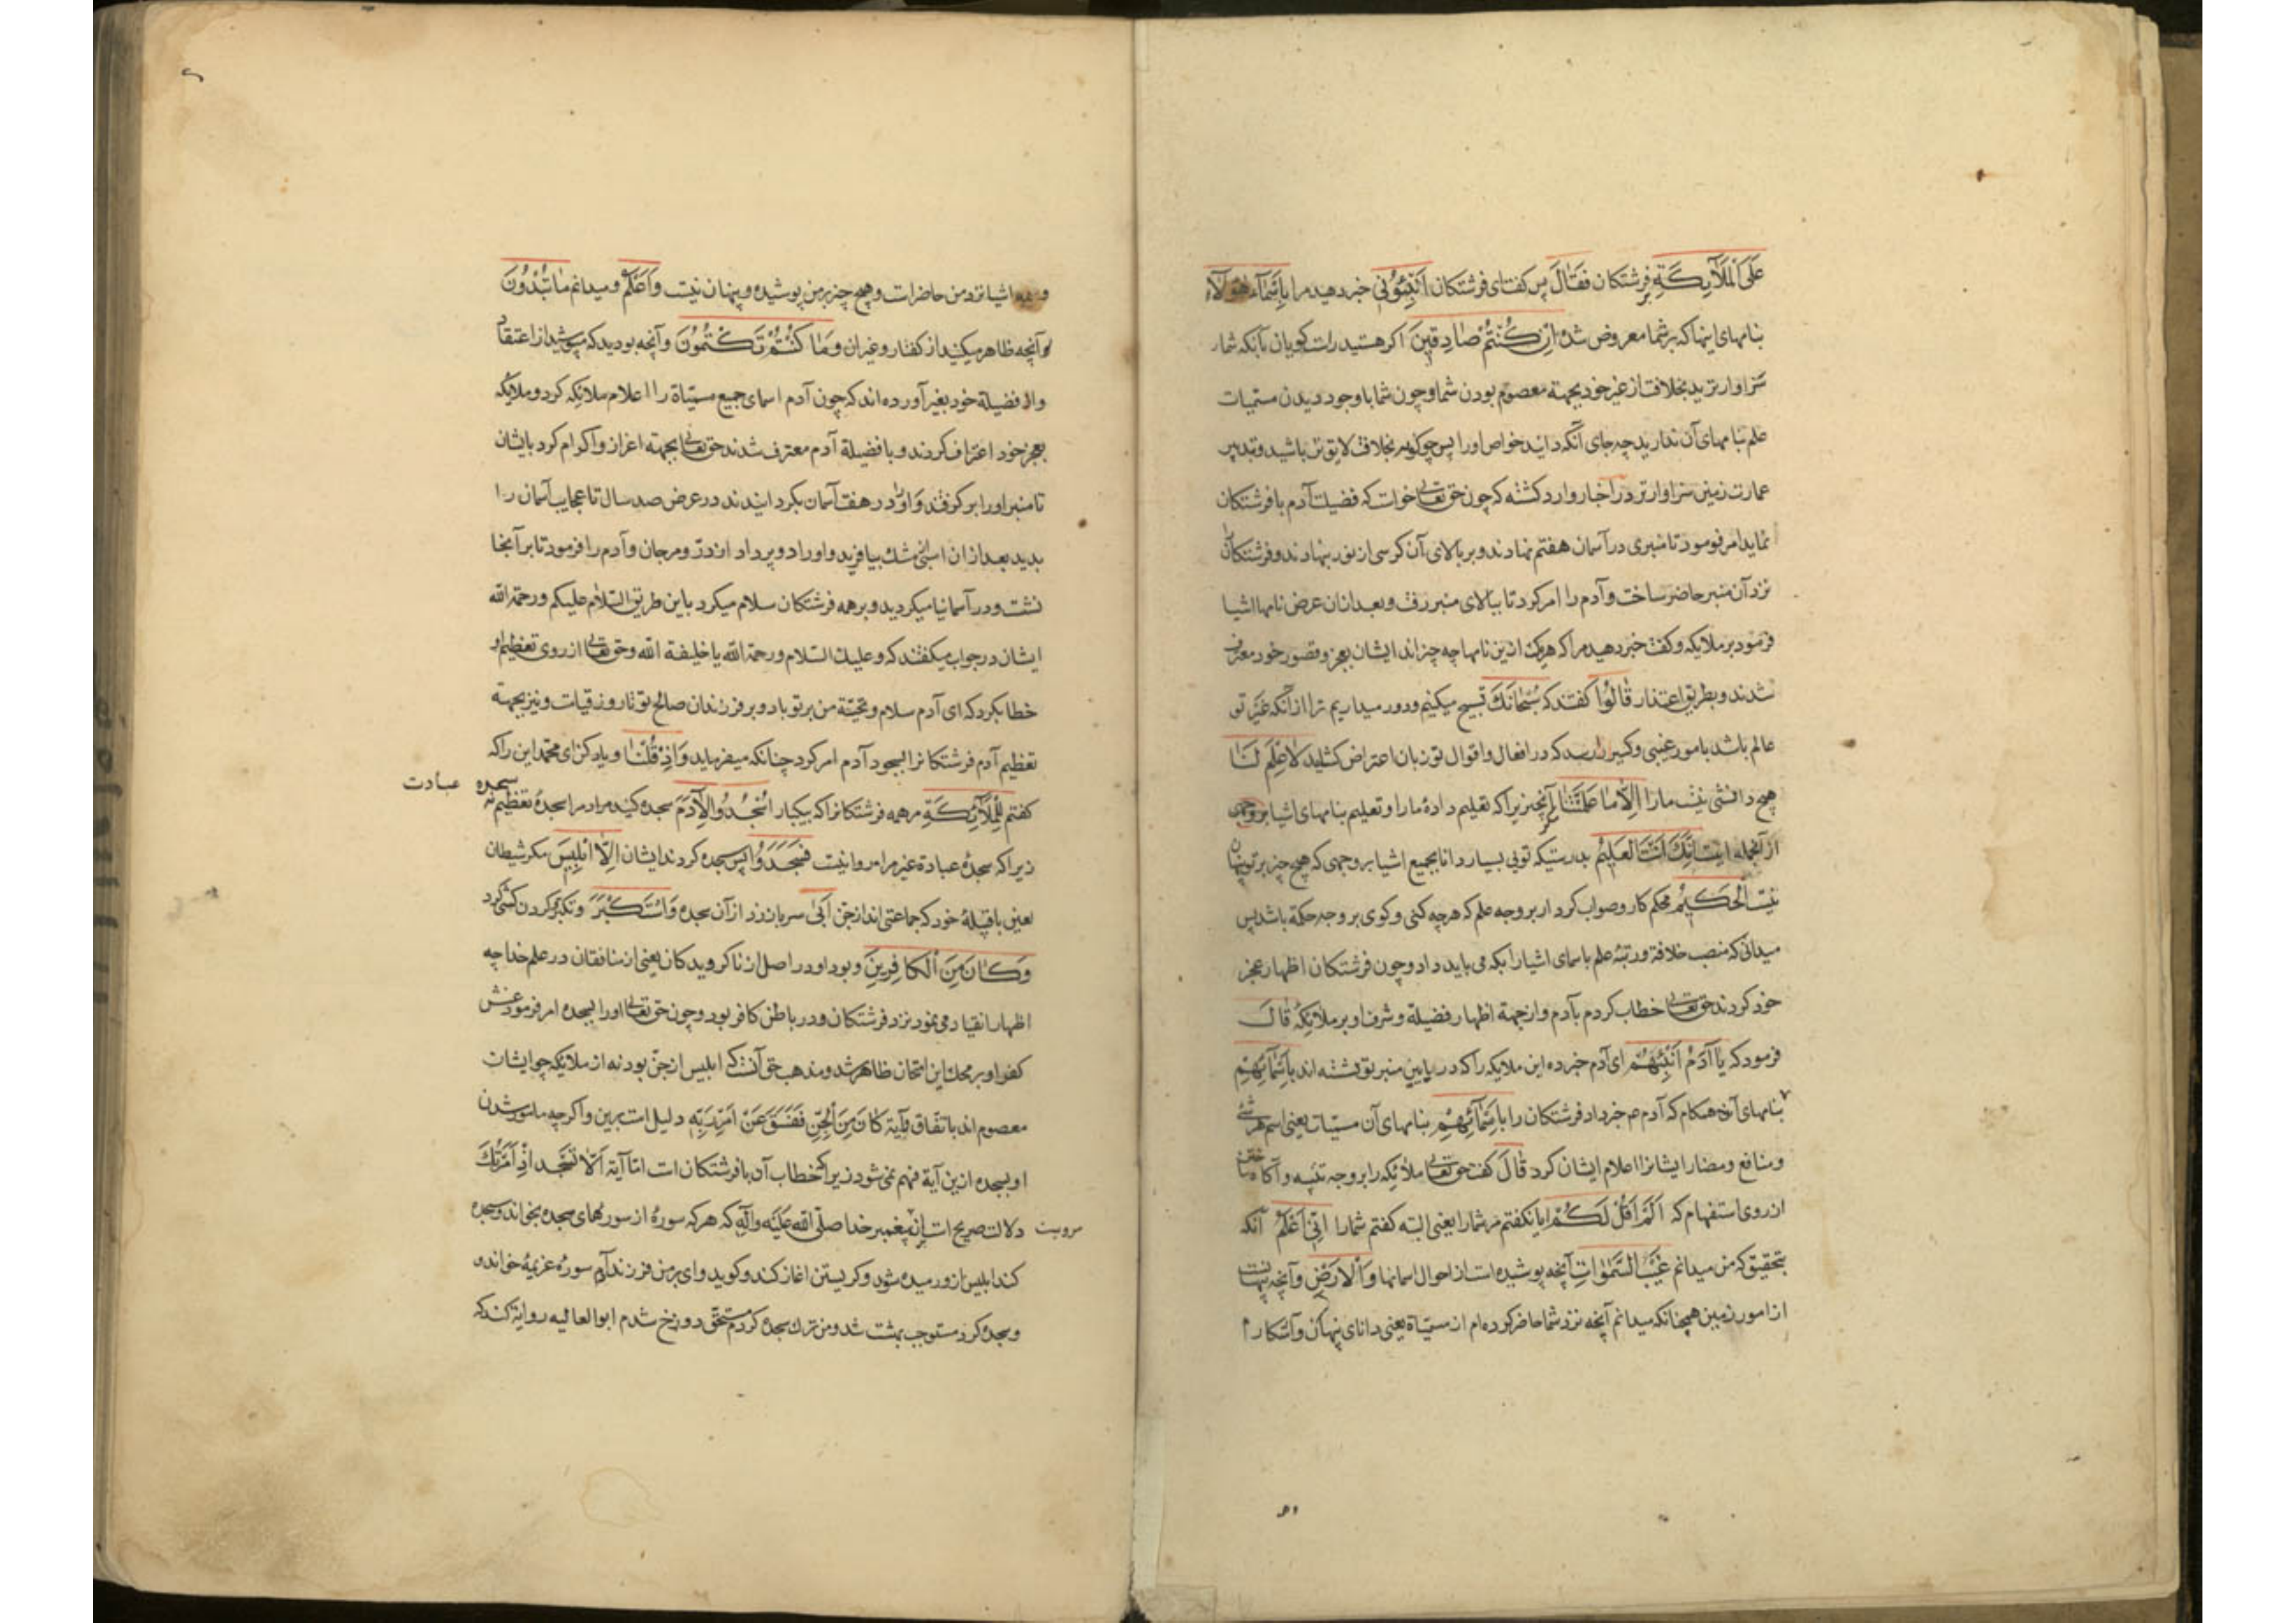 عَلَى الْمَلَآئِكَةِ فرشتكان فَقَالَ پس كفتای فرشتكان اَنْبِئُونِی خبر دهید مرا بِاَسْمَآءِ هٰؤُلَآءِ
بنامهای اینها كه بر شما معروض شده اِنْ كُنْتُمْ صَادِقِینَ اكر هستید راست كویان بآنكه شما
سزاوارترید بخلافت از غیر خود بجهة معصوم بودن شما و چون شما با وجود دیدن مسمیات
علم بنامهای آن ندارید چه جای آنكه دانید خواص اورا پس چكونه بخلافت لایق تر باشید و تدبیر
عمارت زمین سزاوارتر در اخبار وارد كشته كه چون حق تعالی خواست كه فضیلت آدم با فرشتكان
نماید امر فرمود تا منبری در آسمان هفتم نهادند و بر بالای آن كرسی از نور بنهادند و فرشتكان
نزد آن منبر حاضر ساخت و آدم را امر كرد تا ببالای منبر رفت و بعد از آن عرض نامها اشیا
فرمود بر ملایكه و كفت خبر دهید مرا كه هریك ازین نامها چه چیزاند ایشان بعجز و قصور خود معترف
شدند و بطریق اعتذار قَالُوا كفتند كه سُبْحَانَكَ تسبیح میكنیم و دور میداریم ترا از آنكه غیر تو
عالم باشد بامور غیبی و كسیرا رسد كه در افعال و اقوال تو زبان اعتراض كشاید لَا عِلْمَ لَنَا
هیچ دانشی نیست مارا اِلَّا مَا عَلَّمْتَنَا مكر آنچیزیرا كه تعلیم داده مارا و تعلیم بنامهای اشیا بر وجهی
از آنجمله است اِنَّكَ اَنْتَ الْعَلِیمُ بدرستیكه تویی بسیار دانا بجمیع اشیا بر وجهی كه هیچ چیز بر تو پنهان
نیست اَلْحَكِیمُ محكم كار و صواب كردار بر وجه علم كه هرچه كنی و كوی بر وجه حكمة باشد پس
میدانی كه منصب خلافة و رتبهٔ علم باسمای اشیا را بكه می باید داد و چون فرشتكان اظهار عجز
خود كردند حق تعالی خطاب كردم بآدم و از جهة اظهار فضیلة و شرف او بر ملائكه قَالَ
فرمود كه یَا آدَمُ اَنْبِئْهُمْ ای آدم خبر ده این ملایكه را كه در پایین منبر تو نشسته اند بِاَسْمَآئِهِمْ
بنامهای آن هنكام كه آدم خبر داد فرشتكان را بِاَسْمَآئِهِمْ بنامهای آن مسمّیات یعنی اسم هر شیٔ
و منافع و مضار ایشانرا اعلام ایشان كرد قَالَ كفت حق تعالی ملائكه را بر وجه تنبیه و آكاه
از روی استفهام كه اَلَمْ اَقُلْ لَكُمْ ایا نكفتم مر شمارا یعنی البته كفتم شمارا اِنِّی اَعْلَمُ آنكه
بتحقیق كه من میدانم غَیْبَ السَّمٰوَاتِ آنچه پوشیده است از احوال اسمانها وَالْاَرْضِ و آنچه پنهانست
از امور زمین همچنانكه میدانم آنچه نزد شما حاضر كرده ام از مسمّیاة یعنی دانای پنهان و آشكارام
و همه اشیا نزد من حاضرات و هیچ چیز بر من پوشیده و پنهان نیست وَاَعْلَمُ و میدانم مَا تُبْدُونَ
آنچه ظاهر میكنید از كفتار و غیر ان وَمَا كُنْتُمْ تَكْتُمُونَ و آنچه بودید كه میپوشید از اعتقاد
فضیلة خود بغیر آورده اند كه چون آدم اسمای جمیع مسمّیاة را اعلام ملائكه كرد و ملایكه
بعجز خود اعتراف كردند و بافضیلة آدم معترف شدند حق تعالی بجهة اعزاز و اكرام كرد بایشان
تا منبر اورا بر كرفتند و اورا در هفت آسمان بكردانیدند در عرض صد سال تا عجایب آسمان را
بدید بعد از ان اسبی از مشك بیافرید و اورا دو پر داد از درّ و مرجان و آدم را فرمود تا بر آنجا
نشت و در آسمانها میكردید و بر همه فرشتكان سلام میكرد باین طریق السّلام علیكم ورحمة الله
ایشان در جواب میكفتند كه و علیك السّلام ورحمة الله یا خلیفة الله و حق تعالی از روی تعظیم او
خطاب كرد كه ای آدم سلام و تحیّة من بر تو باد و بر فرزندان صالح تو تا روز قیامت و نیز بجهة
تعظیم آدم فرشتكانرا بسجود آدم امر كرد چنانكه میفرماید وَاِذْ قُلْنَا و یاد كن ای محمّد این را كه
سجده عبادت
كفتم لِلْمَلٰٓئِكَةِ مر همه فرشتكانرا كه بیكبار اسْجُدُوا لِاٰدَمَ سجده كنید مر ادم را سجدهٔ تعظیم نه
زیرا كه سجدهٔ عبادة غیر مرا روا نیست فَسَجَدُوا پس سجده كردند ایشان اِلَّا اِبْلِیسَ مكر شیطان
یعنی با قبیلهٔ خود كه جماعتی اند از جن اَبٰی سر باز زد از آن سجده وَاسْتَكْبَرَ و تكبر و كردن كشی كرد
وَكَانَ مِنَ الْكَافِرِینَ و بود او در اصل از ناكرویدكان یعنی از منافقان در علم خدا چه
اظهار انقیاد می نمود نزد فرشتكان و در باطن كافر بود و چون حق تعالی اورا بسجده امر فرمود غش
كفر او بر محك این امتحان ظاهر شد و مذهب حق آنست كه ابلیس از جن بود نه از ملایكه چو ایشان
معصوم اند باتفاق و آیة كَانَ مِنَ الْجِنِّ فَفَسَقَ عَنْ اَمْرِ رَبِّهِ دلیل است برین و اكرچه مامور شدن
او بسجده ازین آیة فهم نمی شود زیرا كه خطاب آن بافرشتكان است امّا آیة اَلَّا تَسْجُدَ اِذْ اَمَرْتُكَ
دلالت صریح است بران پیغمبر خدا صلّی الله علیه وآله كه هر كه سورهٔ از سورهای سجده بخواند و سجده
مرویست
كند ابلیس از و رمیده شود و كریستن اغاز كند و كوید وای بر من فرزند آدم سورهٔ عزیمة خواند و
سجده كرد مستوجب بهشت شد و من ترك سجده كردم مستحق دوزخ شدم ابوالعالیه روایة كند كه